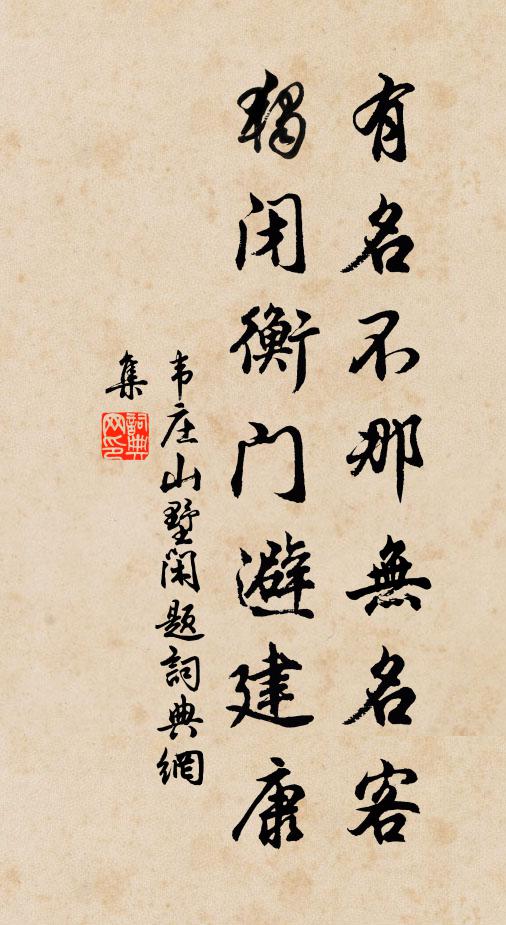 有名不那無名客
獨闭衡门避建康
韦庄山墅闲题詞典網
集
詞典
网印